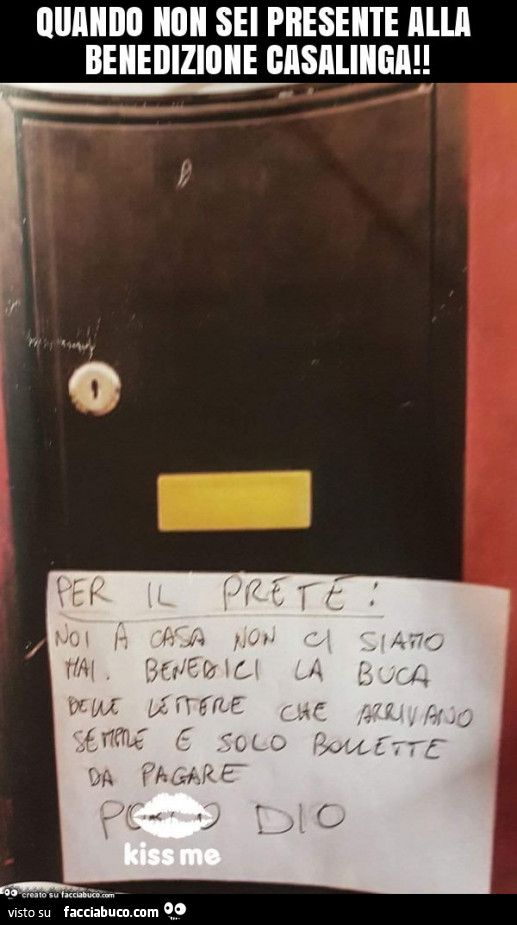 QUANDO NON SEI PRESENTE ALLA
BENEDIZIONE CASALINGA!!
PER IL PRETE:
NOI A CASA NON CI SIAMO
MAI. BENEDICI LA BUCA
DELLE LETTERE CHE ARRIVANO
SEMPRE E SOLO BOLLETTE
DA PAGARE
DIO
kiss me
creato su facciabuco.com
visto su facciabuco.com